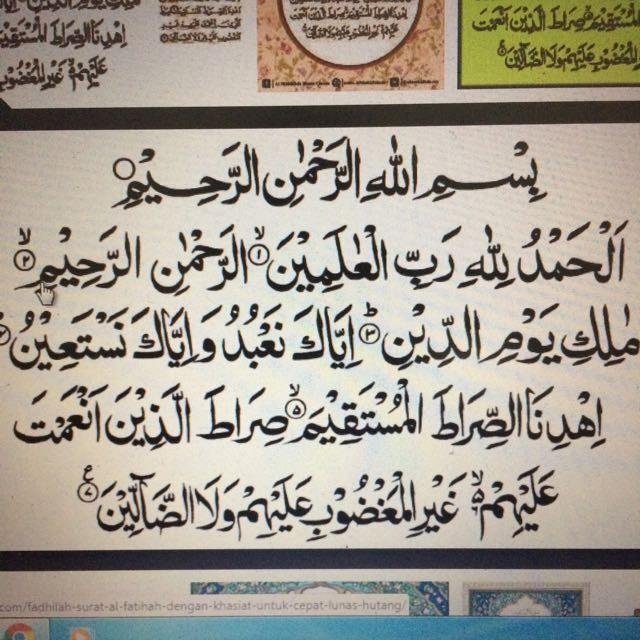 اِهْدِنَا الصِّرَاطَ الْمُسْتَقِيْمَ
عَلَيْهِمْ غَيْرِ الْمَغْضُوْبِ
صِرَاطَ الَّذِيْنَ اَنْعَمْتَ
الْمَغْضُوْبِ عَلَيْهِمْ وَلَا الضَّآلِّيْنَ
بِسْمِ اللهِ الرَّحْمٰنِ الرَّحِيْمِ
اَلْحَمْدُ لِلّٰهِ رَبِّ الْعٰلَمِيْنَ ۙ ١ الرَّحْمٰنِ الرَّحِيْمِ ۙ ٢
مٰلِكِ يَوْمِ الدِّيْنِ ۗ ٣ اِيَّاكَ نَعْبُدُ وَاِيَّاكَ نَسْتَعِيْنُ
اِهْدِنَا الصِّرَاطَ الْمُسْتَقِيْمَ ۙ ٥ صِرَاطَ الَّذِيْنَ اَنْعَمْتَ
عَلَيْهِمْ ۙ غَيْرِ الْمَغْضُوْبِ عَلَيْهِمْ وَلَا الضَّآلِّيْنَ ࣖ ٧
com/fadhilah-surat-al-fatihah-dengan-khasiat-untuk-cepat-lunas-hutang/